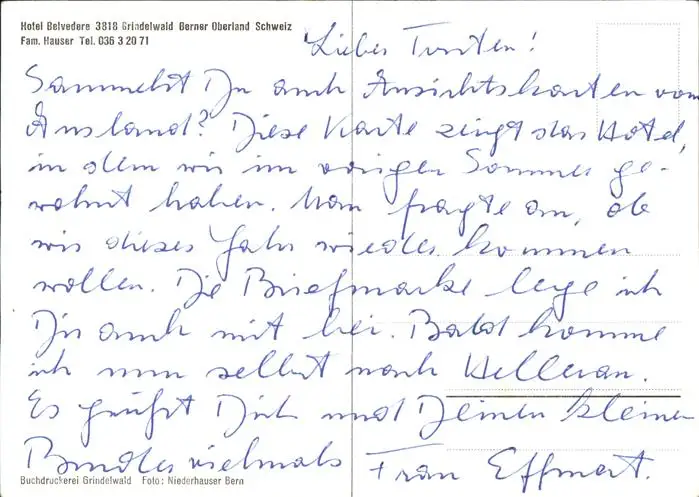 Hotel Belvedere 3818 Grindelwald Berner Oberland Schweiz
Fam. Hauser Tel. 036 3 20 71
Lieber Torsten!
Sammelst Du auch Ansichtskarten vom
Ausland? Diese Karte zeigt das Hotel,
in dem wir im vorigen Sommer ge-
wohnt haben. Man fragte an, ob
wir dieses Jahr wieder kommen
wollen. Die Briefmarke lege ich
Dir auch mit bei. Bald komme
ich nun selbst nach Hellerau.
Es grüßt Dich und Deinen kleinen
Bruder vielmals Frau Effmert.
Buchdruckerei Grindelwald Foto: Niederhauser Bern